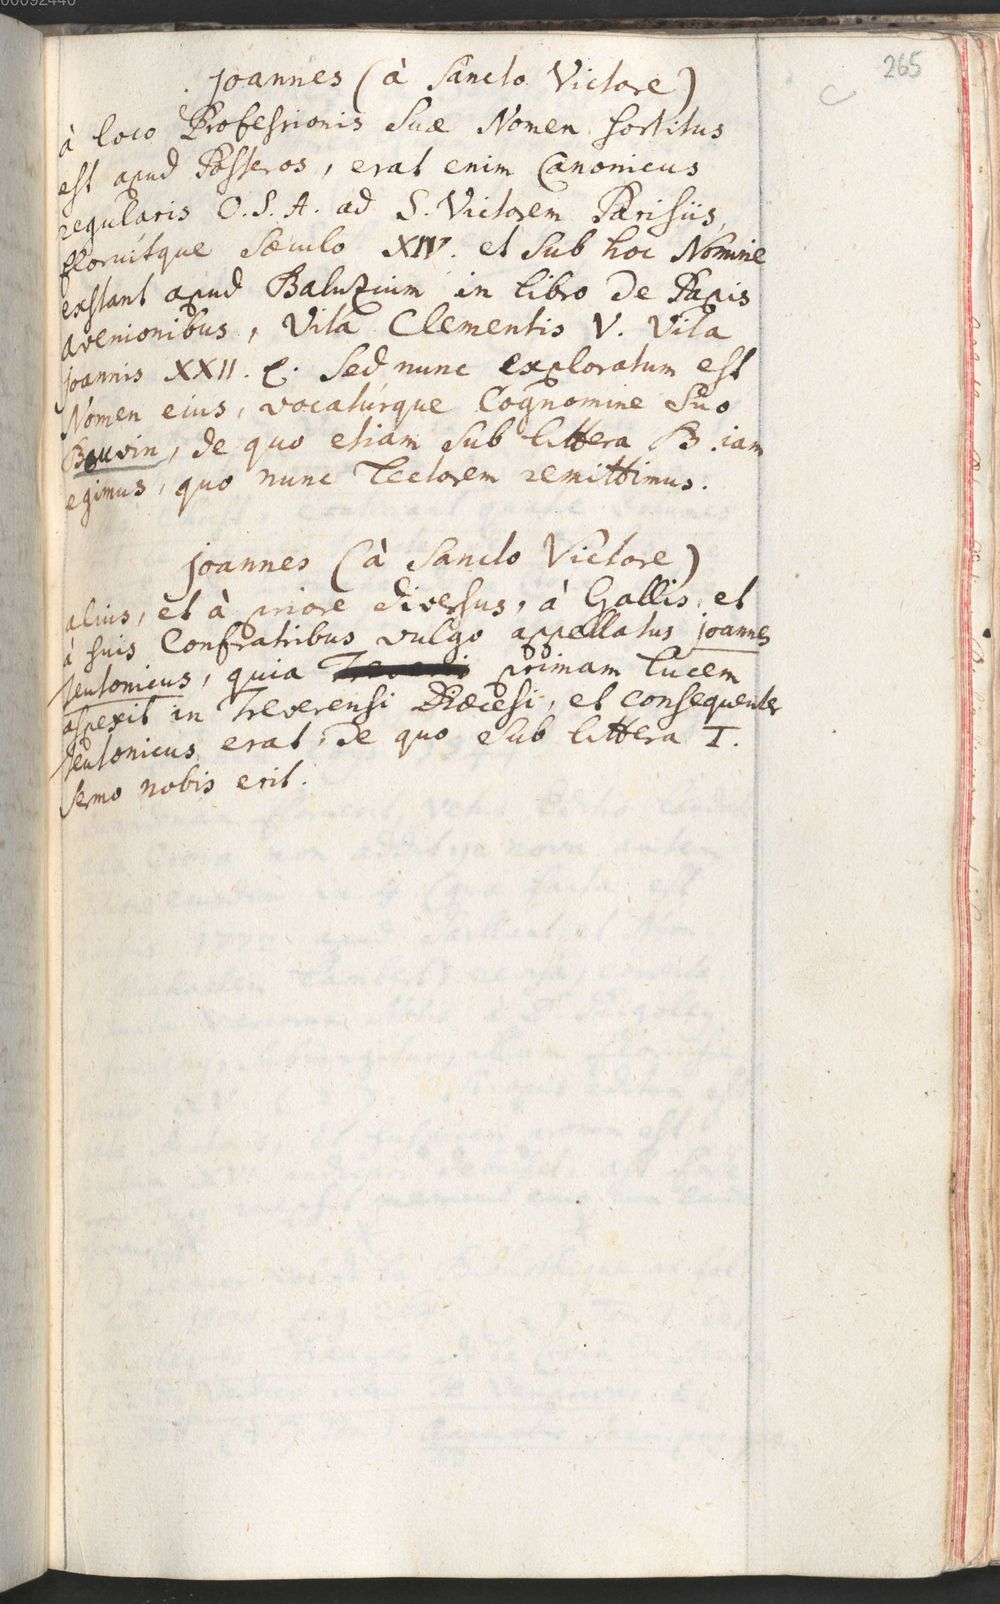 00092440
265
Joannes (à Sancto Victore)
à loco Professionis Suæ Nomen sortitus
est apud Posteros, erat enim Canonicus
regularis O. S. A. ad S. Victorem Parisiis,
floruitque Sæculo XIV. et sub hoc Nomine
exstant apud Baluzium in libro de Papis
avenionibus, Vita Clementis V. Vita
Joannis XXII. &. Sed nunc exploratum est
Nomen eius, vocaturque Cognomine Suo
Bouvin, de quo etiam sub littera B. iam
egimus, quo nunc Lectorem remittimus.
Joannes (à Sancto Victore)
alius, et à priore diversus, à Gallis, et
à suis Confratribus vulgo appellatus Joannes
Teutonicus, quia primam lucem
aspexit in Treverensi Diœcesi, et consequenter
Teutonicus erat, de quo sub littera T.
sermo nobis erit.